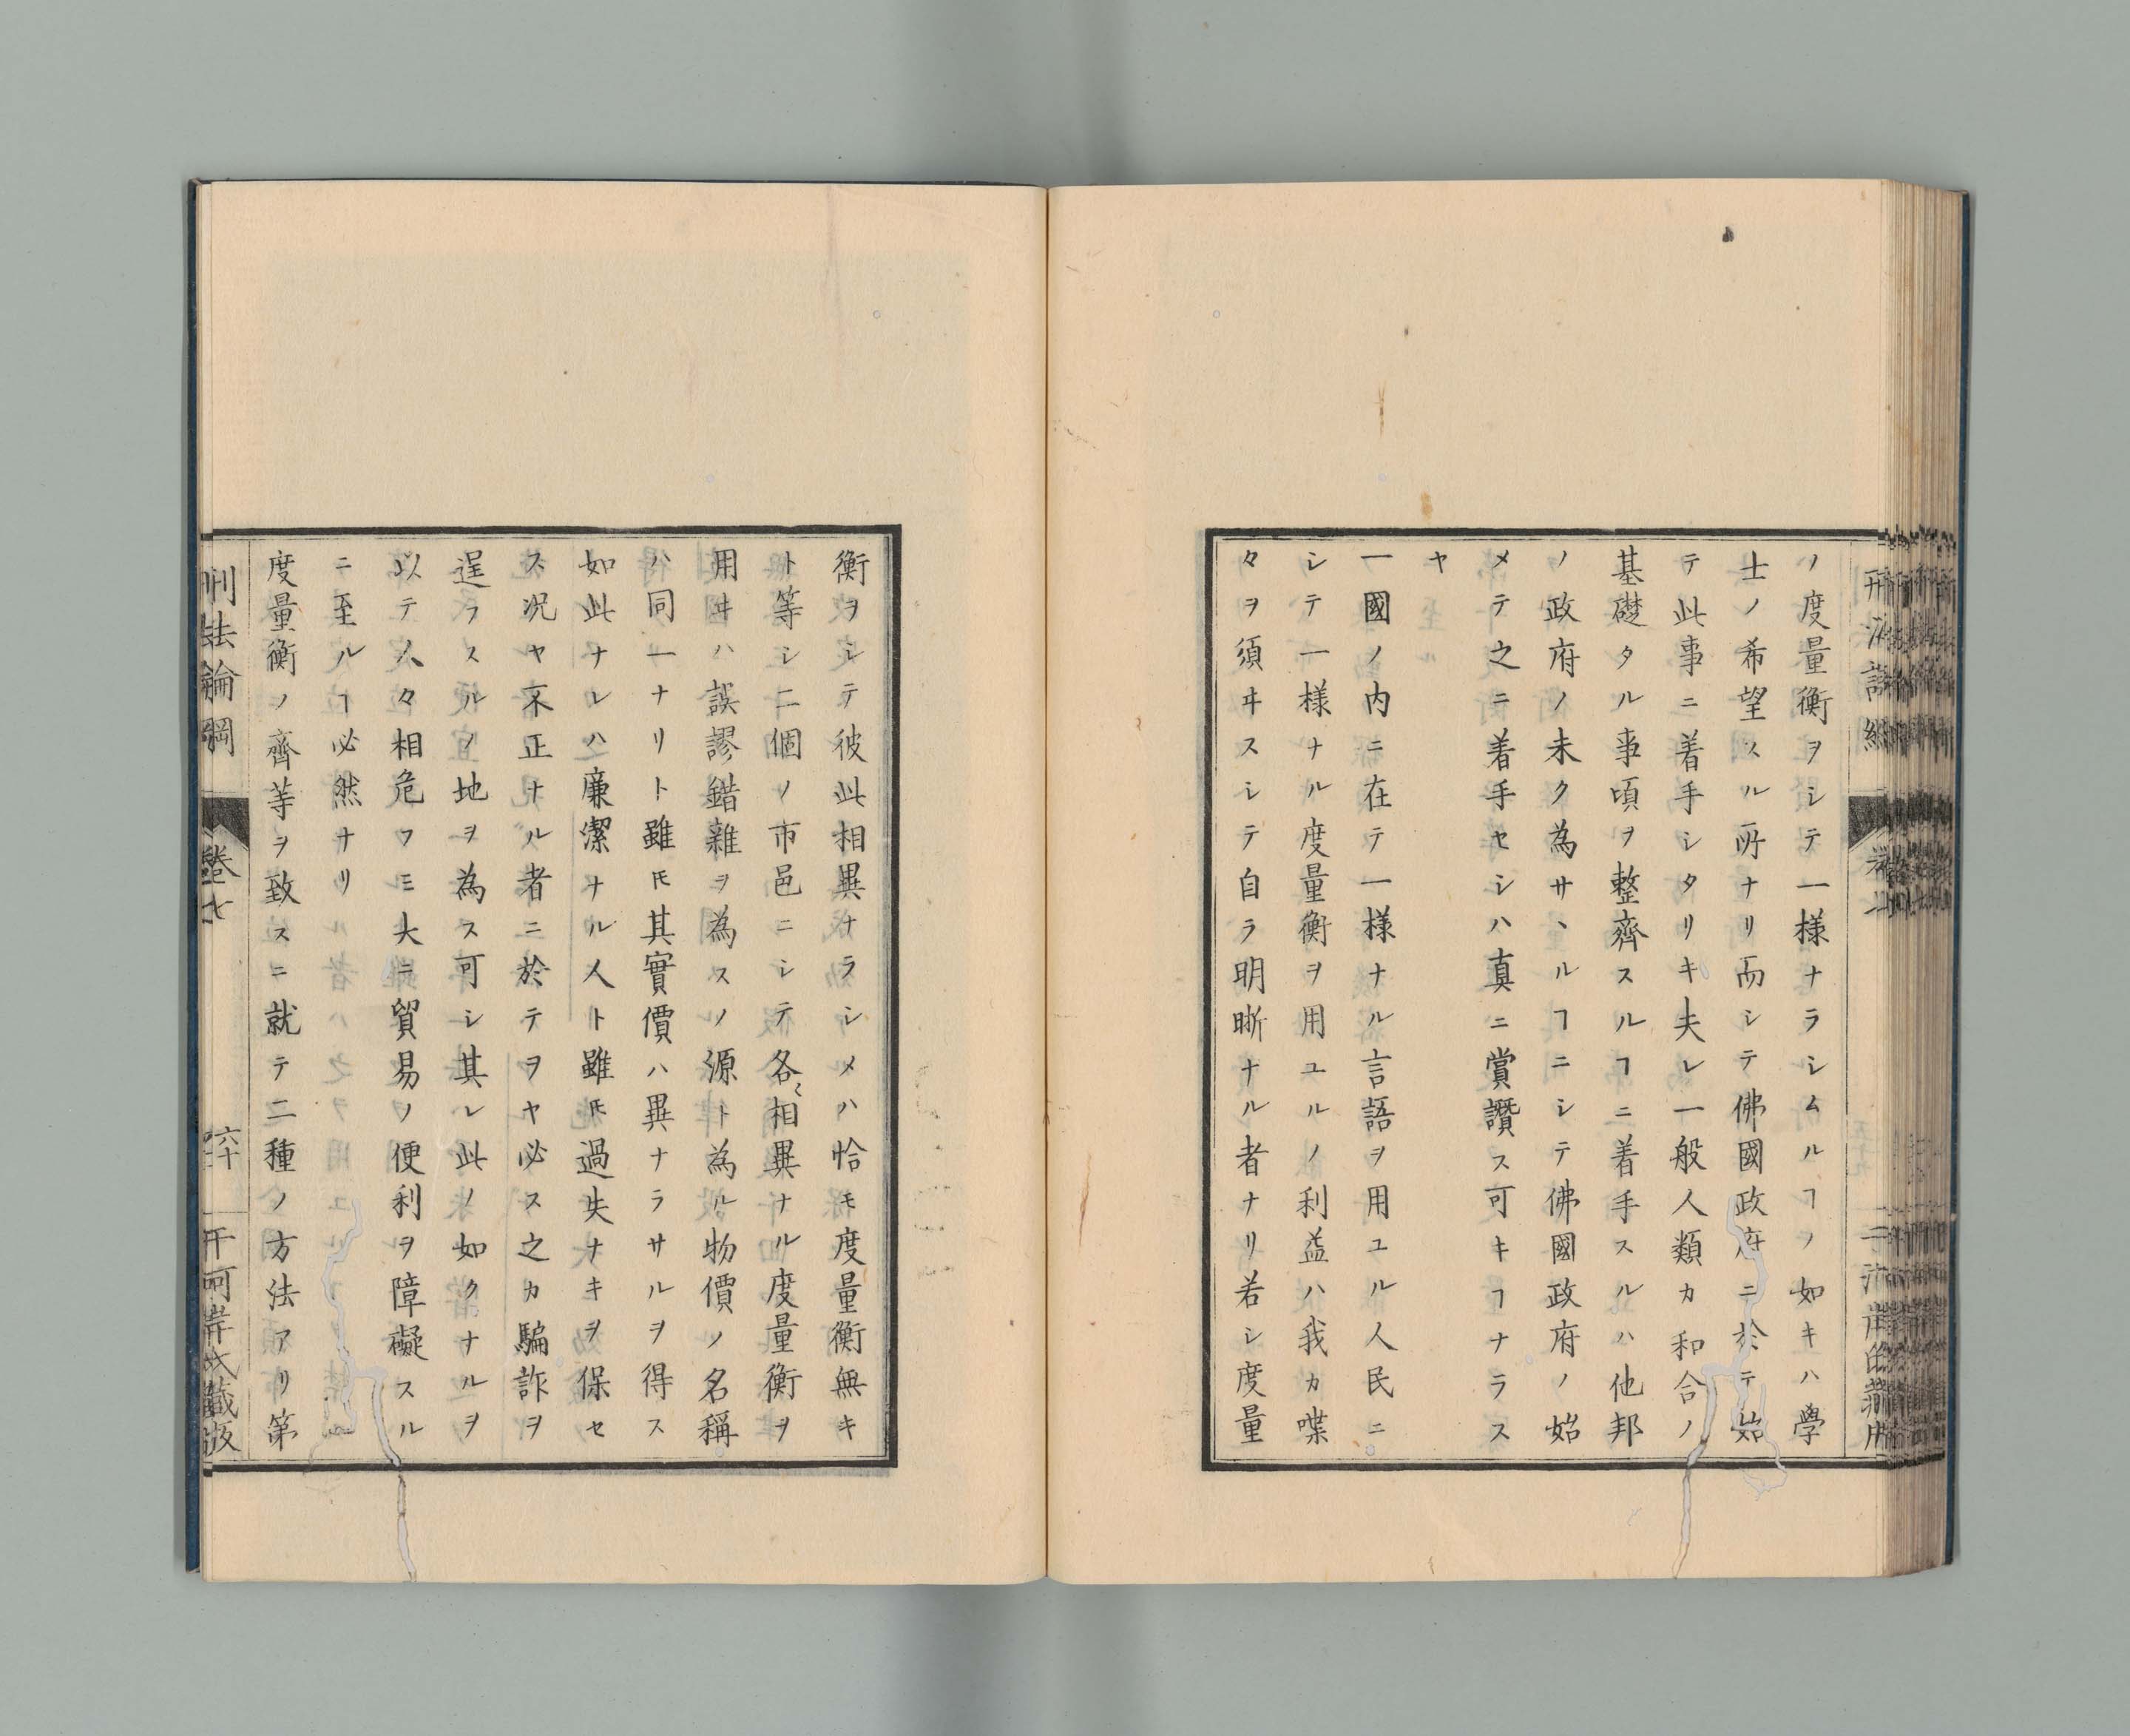 ノ度量衡ヲシテ一様ナラシムルヿノ如キハ學
士ノ希望スル所ナリ而シテ佛國政府ニ於テ始
テ此事ニ着手シタリキ夫レ一般人類カ和合ノ
基礎タル事項ヲ整齊スルヿニ着手スルハ他邦
ノ政府ノ未ク為サヽルヿニシテ佛國政府ノ始
メテ之ニ着手セシハ真ニ賞讚ス可キヿナラス
ヤ
一國ノ内ニ在テ一様ナル言語ヲ用ユル人民ニ
シテ一様ナル度量衡ヲ用ユルノ利益ハ我カ喋
々ヲ須ヰスシテ自ラ明晰ナル者ナリ若シ度量
衡ヲシテ彼此相異ナラシメハ恰モ度量衡無キ
ト等シ二個ノ市邑ニシテ各〻相異ナル度量衡ヲ
用ヰハ誤謬錯雜ヲ為スノ源ト為ル物價ノ名稱
ハ同一ナリト雖𪜈其實價ハ異ナラサルヲ得ス
如此ナレハ廉潔ナル人ト雖𪜈過失ナキヲ保セ
ス况ヤ不正ナル者ニ於テヲヤ必ス之カ騙詐ヲ
逞フスルノ地ヲ為ス可シ其レ此ノ如クナルヲ
以テ人々相危フミ大ニ貿易ノ便利ヲ障礙スル
ニ至ルヿ必然ナリ
度量衡ノ齊等ヲ致スニ就テ二種ノ方法アリ第
刑法論綱
卷七
六十